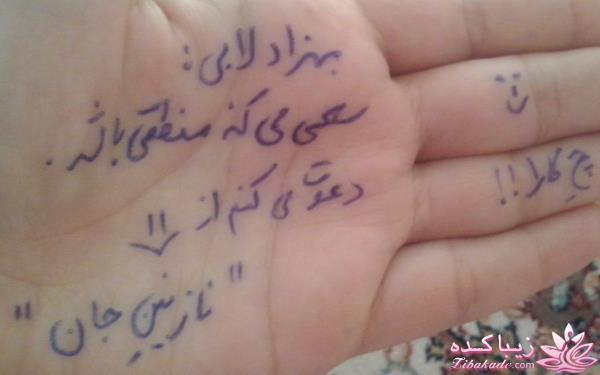 بهزاد لابی:
سعی می کنه منطقی باشه.
دعوت می کنم از
"نازنینِ جان"
چِ کارا!!
زیباکده
Zibakade.com